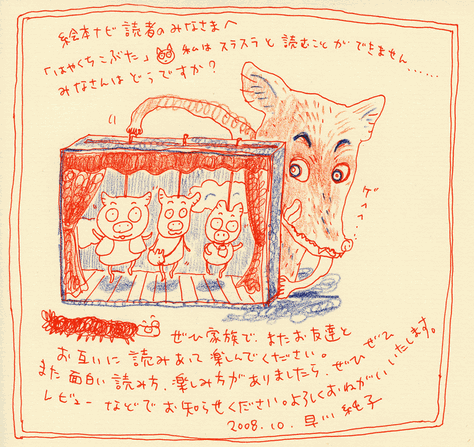 絵本ナビ 読者のみなさまへ
「はやくちこぶた」 私は スラスラ と 読むこと が できません......
みなさんは どうですか?
ゲヘヘヘ...
ぜひ 家族で、また お友達と
お互いに 読みあって 楽しんでください。
また 面白い 読み方、楽しみ方が ありましたら、ぜひ ぜひ
レビュー などで お知らせください。よろしくおねがい いたします。
2008.10. 早川 純子